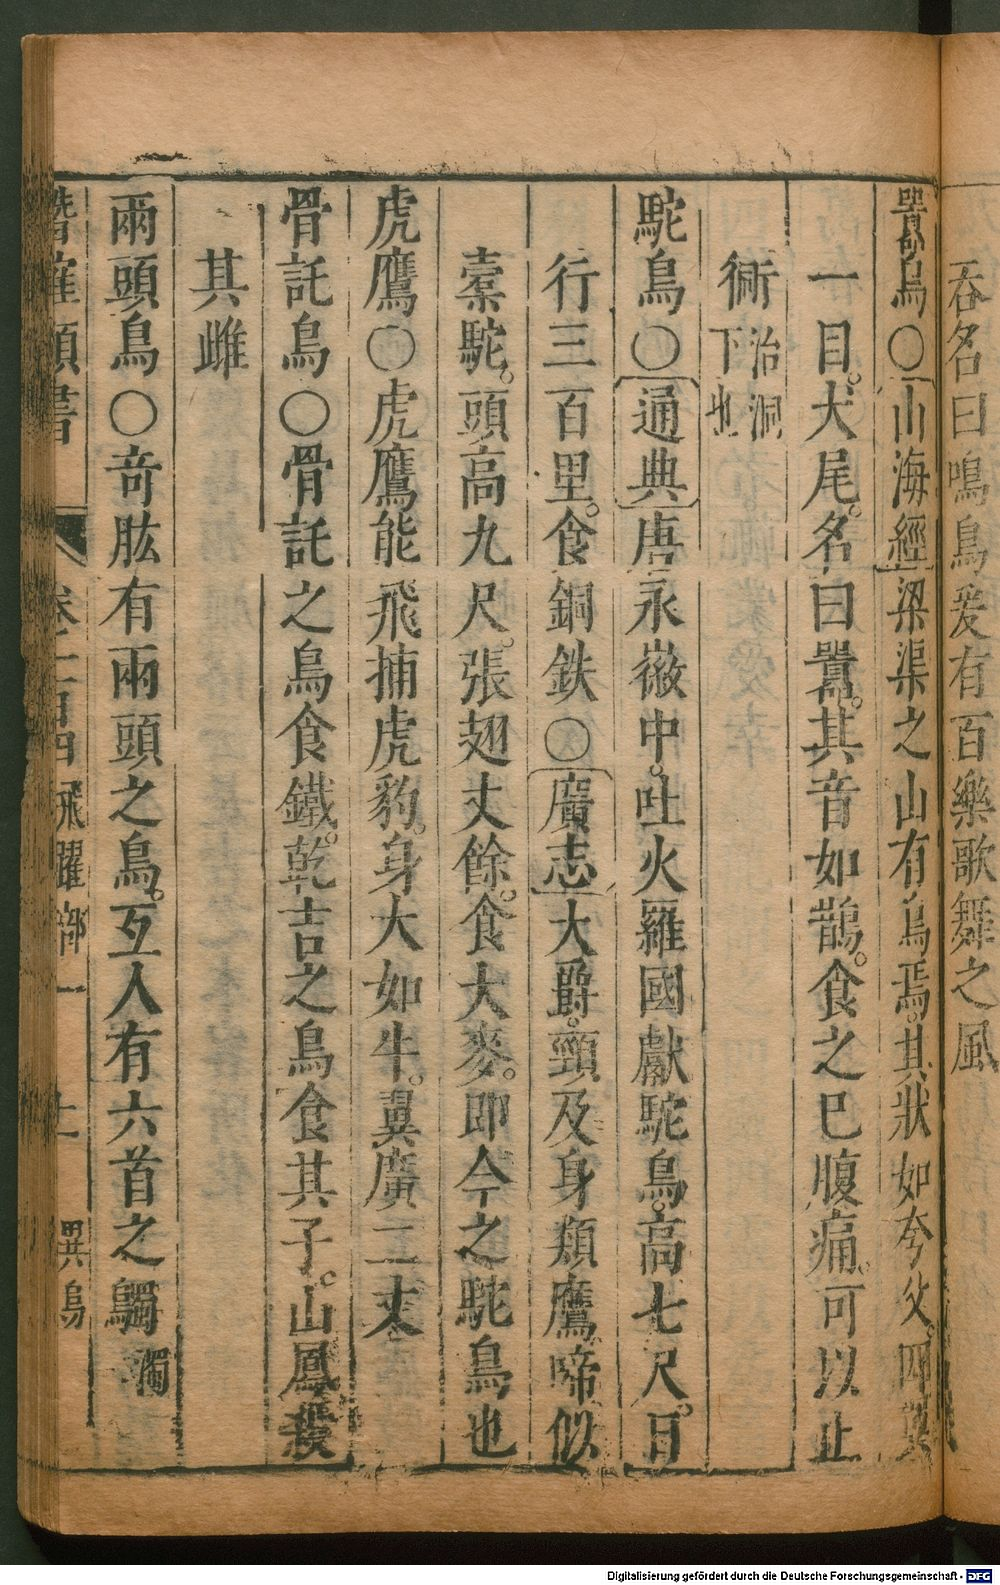 吞名曰鳴鳥爰有百樂歌舞之風
囂鳥○山海經梁渠之山有鳥焉。其狀如夸父。四翼
一目。犬尾。名曰囂。其音如鵲。食之巳腹痛。可以止
衕治洞
下也
駝鳥○通典唐永徽中。吐火羅國獻駝鳥。高七尺。日
行三百里。食銅鉄○廣志大爵。頸及身類鷹。啼似
槖駝。頭高九尺。張翅丈餘。食大麥。即今之駝鳥也
虎鷹○虎鷹能飛捕虎豹。身大如牛。翼廣二丈
骨託鳥○骨託之鳥食鐵。乾吉之鳥食其子。山鳳
其雌
兩頭鳥○竒肱有兩頭之鳥。互人有六首之鸀獨
類書 飛躍部一 上 異鳥
Digitalisierung gefördert durch die Deutsche Forschungsgemeinschaft - DFG